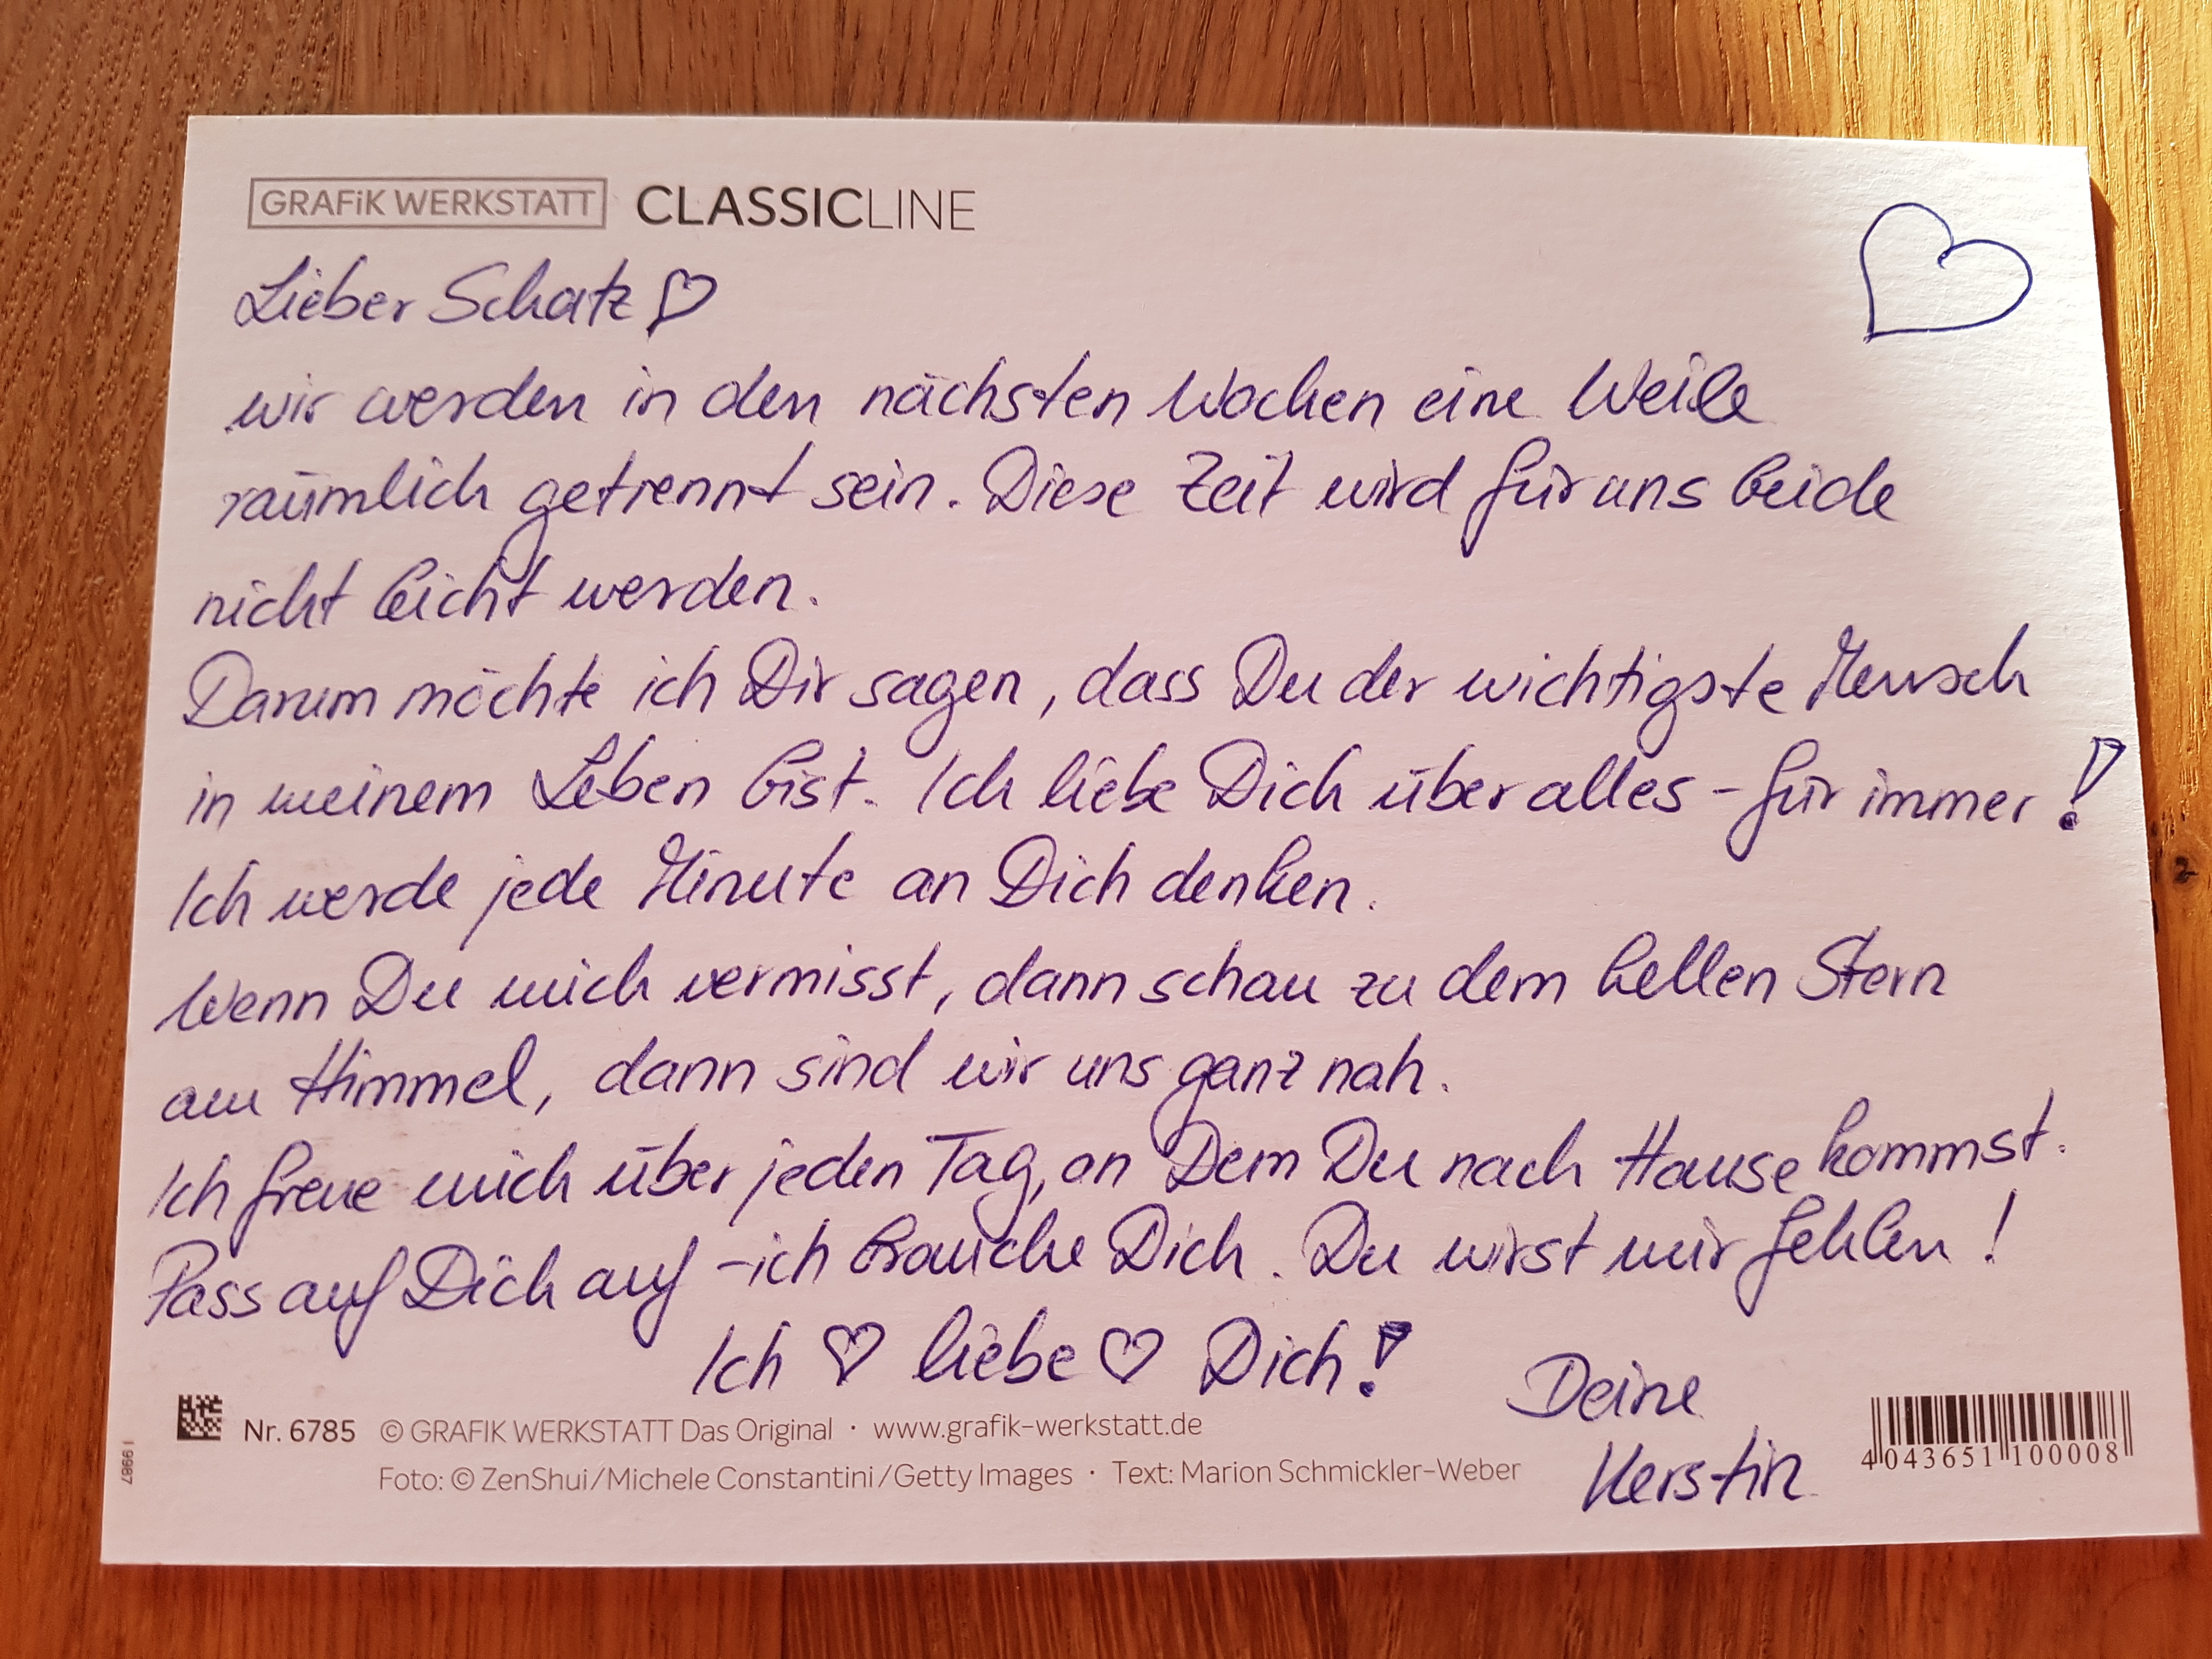 GRAFiK WERKSTATT CLASSICLINE
Lieber Schatz ♡
wir werden in den nächsten Wochen eine Weile
räumlich getrennt sein. Diese Zeit wird für uns beide
nicht leicht werden.
Darum möchte ich Dir sagen, dass Du der wichtigste Mensch
in meinem Leben bist. Ich liebe Dich über alles - für immer!
Ich werde jede Minute an Dich denken.
Wenn Du mich vermisst, dann schau zu dem hellen Stern
am Himmel, dann sind wir uns ganz nah.
Ich freue mich über jeden Tag, an Dem Du nach Hause kommst.
Pass auf Dich auf - ich brauche Dich. Du wirst mir fehlen!
Ich ♡ liebe ♡ Dich!
Deine
Kerstin
Nr. 6785 © GRAFIK WERKSTATT Das Original · www.grafik-werkstatt.de
Foto: © ZenShui/Michele Constantini/Getty Images · Text: Marion Schmickler-Weber
4 043651 100008